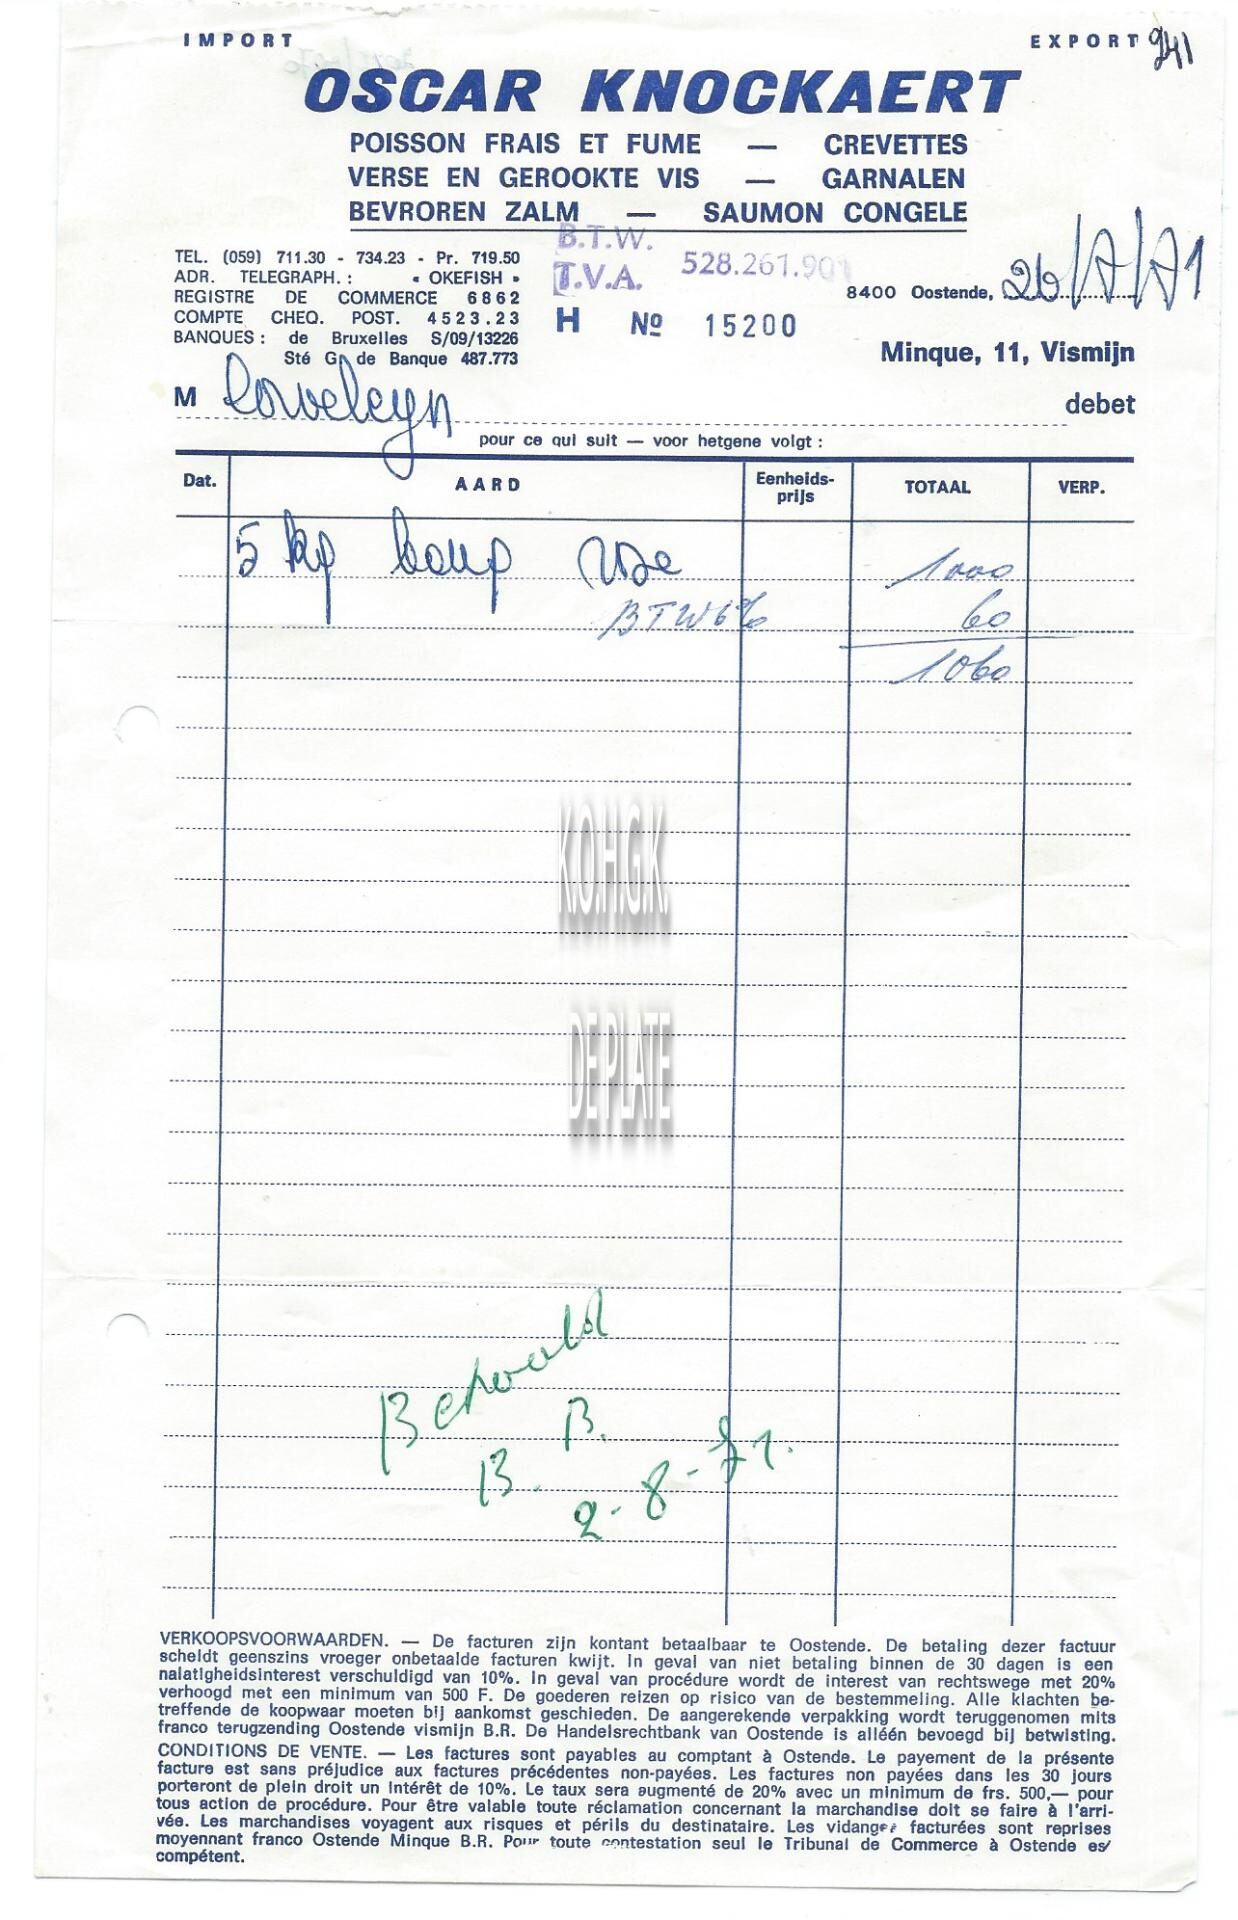 IMPORT
EXPORT 941
OSCAR KNOCKAERT
POISSON FRAIS ET FUME — CREVETTES
VERSE EN GEROOKTE VIS — GARNALEN
BEVROREN ZALM — SAUMON CONGELE
B.T.W.
T.V.A. 528.261.901
TEL. (059) 711.30 - 734.23 - Pr. 719.50
ADR. TELEGRAPH. : « OKEFISH »
REGISTRE DE COMMERCE 6862
COMPTE CHEQ. POST. 4523.23
BANQUES : de Bruxelles S/09/13226
Sté G. de Banque 487.773
8400 Oostende, 26/7/71
H № 15200
Minque, 11, Vismijn
M debet
pour ce qui suit — voor hetgene volgt :
Dat. AARD Eenheids-prijs TOTAAL VERP.
5 kg 1000
BTW 6% 60
1060
K.O.H.G.K.
DE PLATE
Betaald
B. B.
2-8-71.
VERKOOPSVOORWAARDEN. — De facturen zijn kontant betaalbaar te Oostende. De betaling dezer factuur
scheldt geenszins vroeger onbetaalde facturen kwijt. In geval van niet betaling binnen de 30 dagen is een
nalatigheidsinterest verschuldigd van 10%. In geval van procédure wordt de interest van rechtswege met 20%
verhoogd met een minimum van 500 F. De goederen reizen op risico van de bestemmeling. Alle klachten be-
treffende de koopwaar moeten bij aankomst geschieden. De aangerekende verpakking wordt teruggenomen mits
franco terugzending Oostende vismijn B.R. De Handelsrechtbank van Oostende is alléén bevoegd bij betwisting.
CONDITIONS DE VENTE. — Les factures sont payables au comptant à Ostende. Le payement de la présente
facture est sans préjudice aux factures précédentes non-payées. Les factures non payées dans les 30 jours
porteront de plein droit un intérêt de 10%. Le taux sera augmenté de 20% avec un minimum de frs. 500,— pour
tous action de procédure. Pour être valable toute réclamation concernant la marchandise doit se faire à l'arri-
vée. Les marchandises voyagent aux risques et périls du destinataire. Les vidanges facturées sont reprises
moyennant franco Ostende Minque B.R. Pour toute contestation seul le Tribunal de Commerce à Ostende es
compétent.